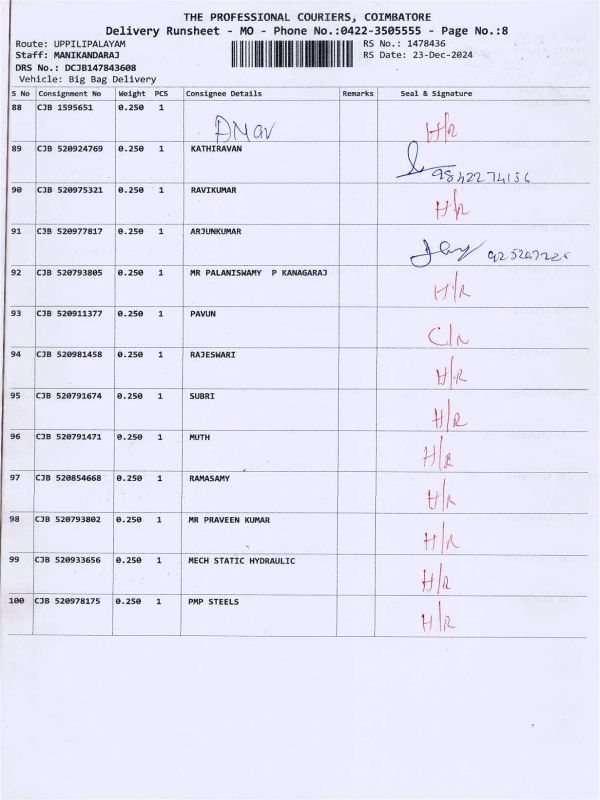 THE PROFESSIONAL COURIERS, COIMBATORE
Delivery Runsheet - MO - Phone No.:0422-3505555 - Page No.:8
Route: UPPILIPALAYAM RS No.: 1478436
Staff: MANIKANDARAJ RS Date: 23-Dec-2024
DRS No.: DCJB147843608
Vehicle: Big Bag Delivery
S No Consignment No Weight PCS Consignee Details Remarks Seal & Signature
88 CJB 1595651 0.250 1
H/R
89 CJB 520924769 0.250 1 KATHIRAVAN
9842274156
90 CJB 520975321 0.250 1 RAVIKUMAR
H/R
91 CJB 520977817 0.250 1 ARJUNKUMAR
92 CJB 520793805 0.250 1 MR PALANISWAMY P KANAGARAJ
H/R
93 CJB 520911377 0.250 1 PAVUN
C/R
94 CJB 520981458 0.250 1 RAJESWARI
H/R
95 CJB 520791674 0.250 1 SUBRI
H/R
96 CJB 520791471 0.250 1 MUTH
H/R
97 CJB 520854668 0.250 1 RAMASAMY
H/R
98 CJB 520793802 0.250 1 MR PRAVEEN KUMAR
H/R
99 CJB 520933656 0.250 1 MECH STATIC HYDRAULIC
H/R
100 CJB 520978175 0.250 1 PMP STEELS
H/R